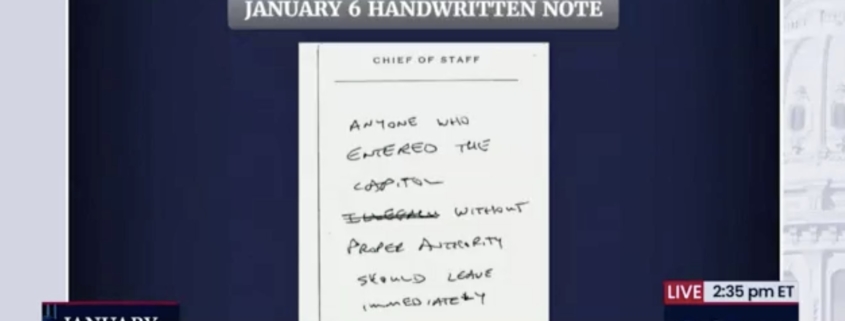 JANUARY 6 HANDWRITTEN NOTE
CHIEF OF STAFF
ANYONE WHO
ENTERED THE
CAPITOL
ILLEGALLY WITHOUT
PROPER AUTHORITY
SHOULD LEAVE
IMMEDIATELY
LIVE 2:35 pm ET
JANUARY